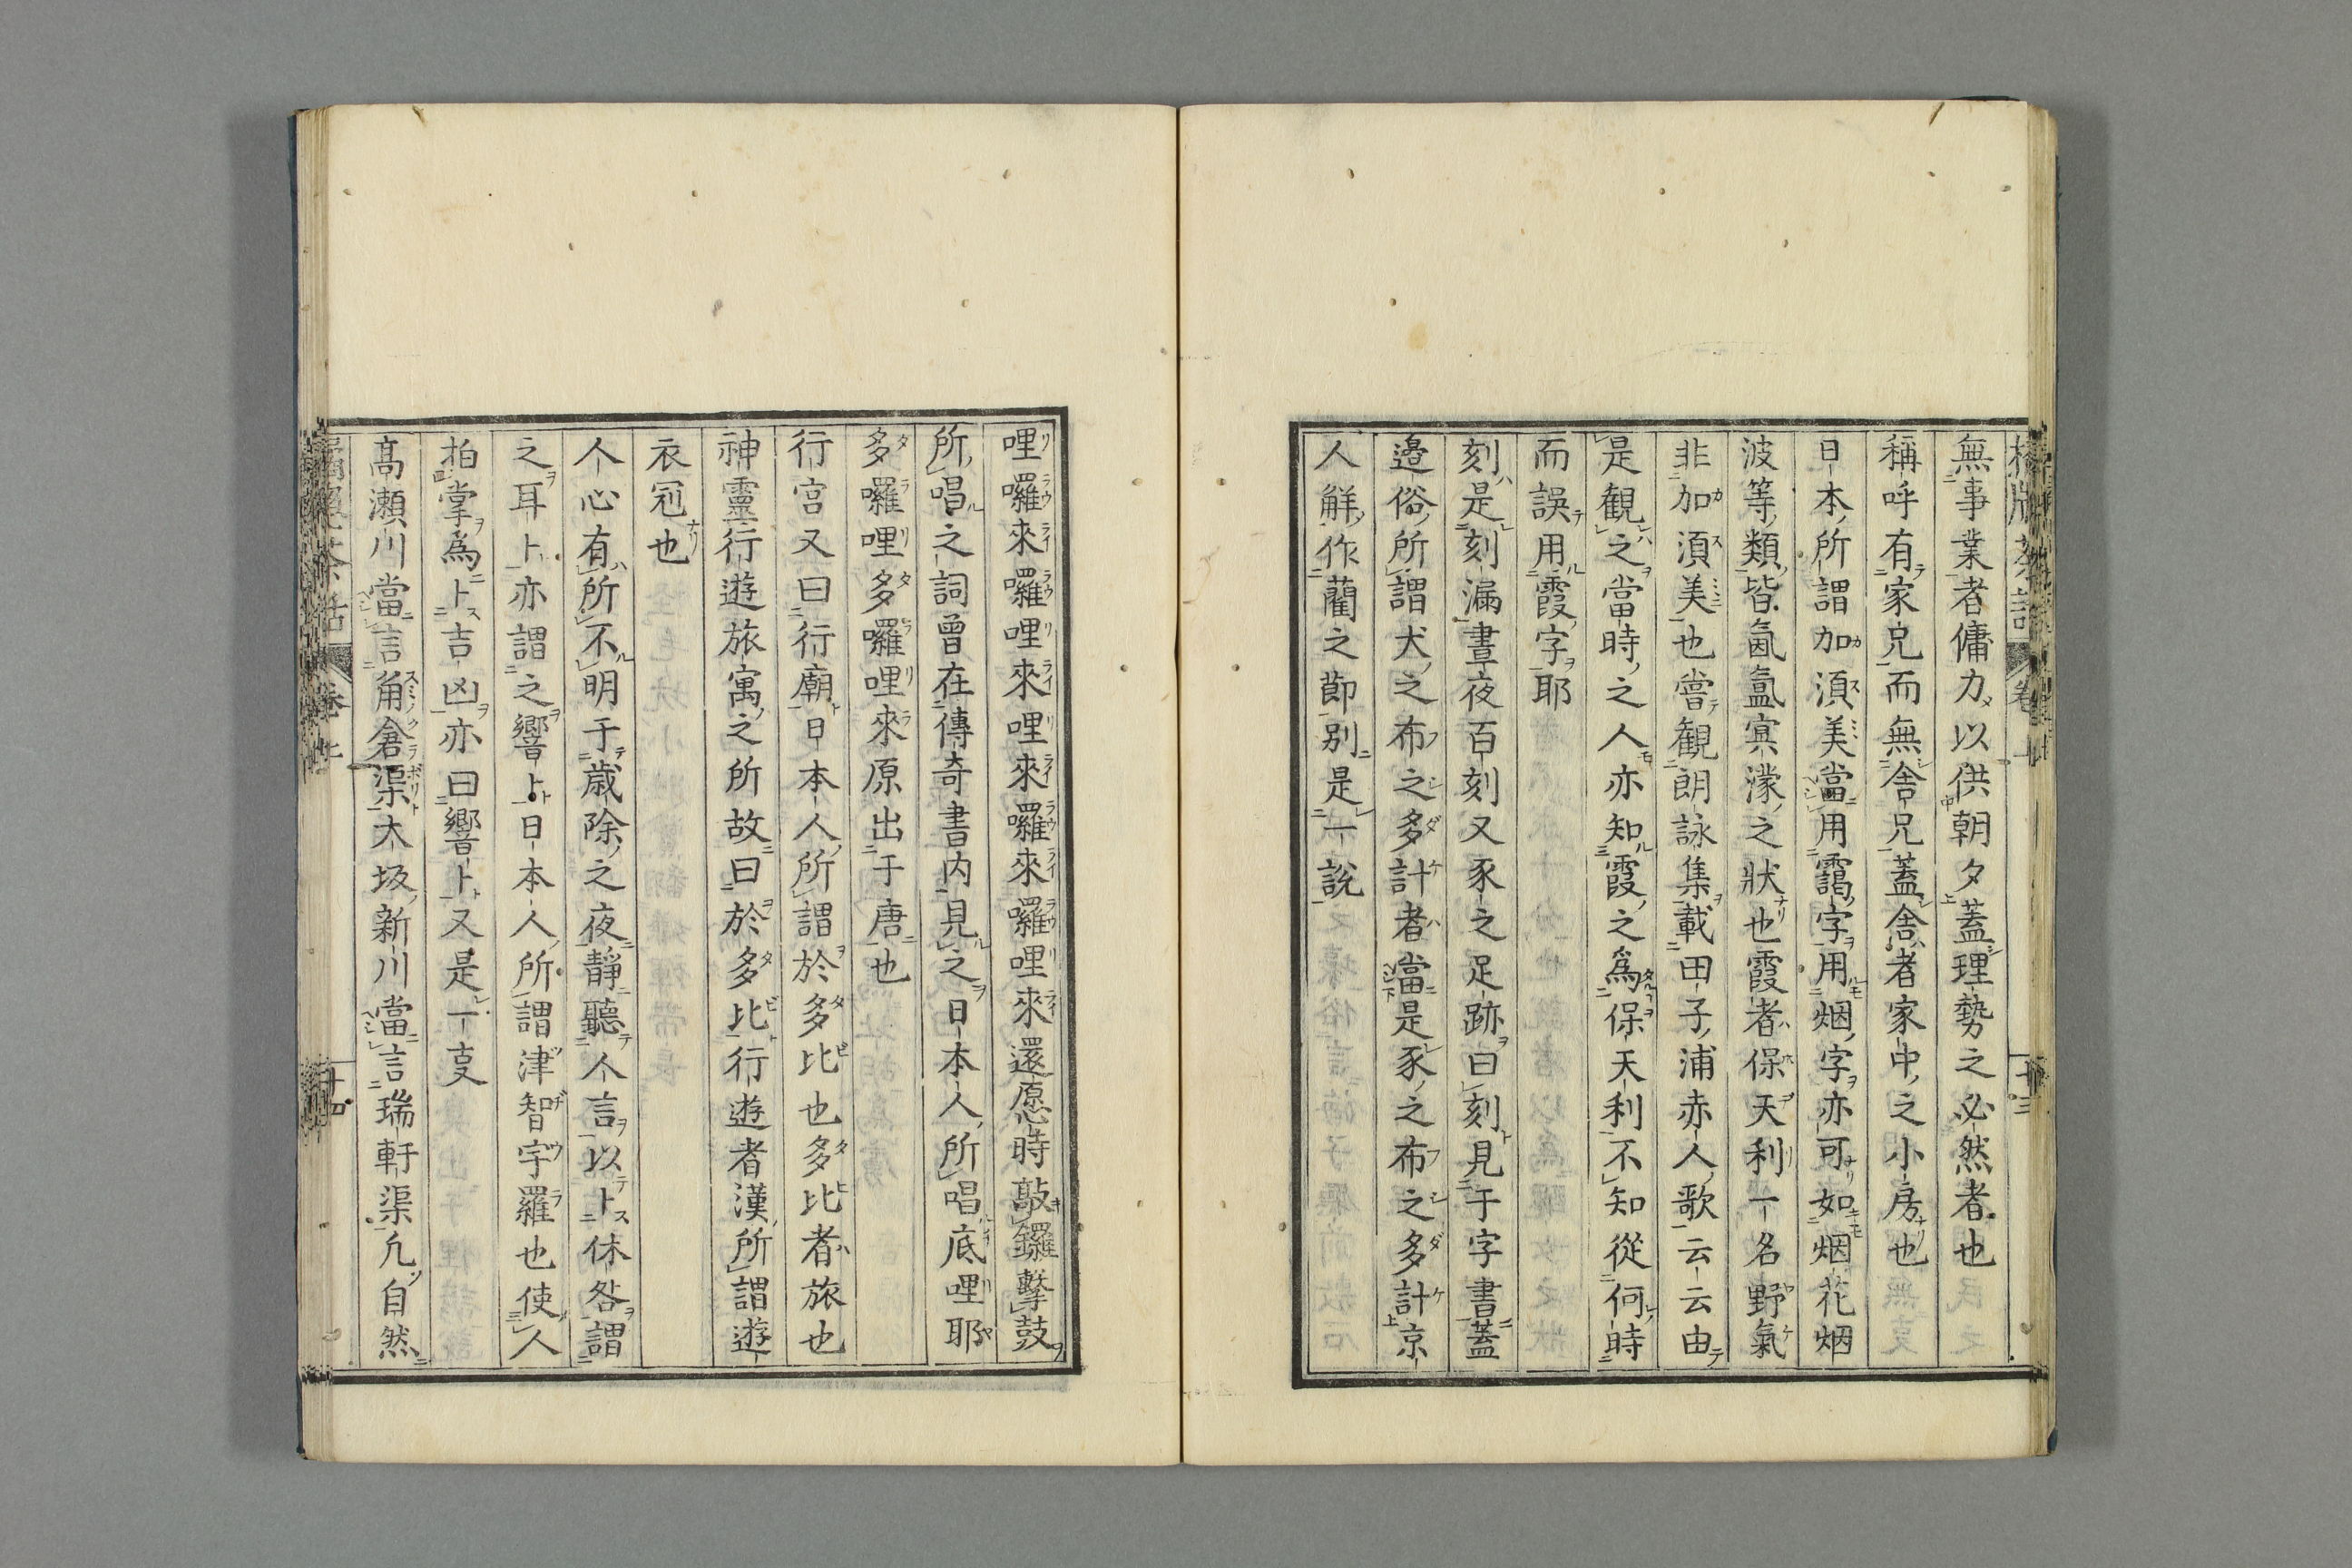 無事業者傭力以供朝夕蓋理勢之必然者也
稱呼有家兄而無舎兄蓋舎者家中之小房也
日本所謂加須美當用靄字用烟字亦可如烟花烟
波等類皆氤氳冥濛之狀也霞者保天利一名野氣
非加須美也嘗観朗詠集載田子浦赤人歌云云由
是観之當時之人亦知霞之為保天利不知從何時
而誤用霞字耶
刻是刻漏晝夜百刻又豕之足跡曰刻見于字書蓋
邉俗所謂犬之布之多計者當是豕之布之多計京
人鮮作藺之節別是一說
哩囉來囉哩來哩來囉來囉哩來還愿時敲鑼擊鼓
所唱之詞曽在傳奇書内見之日本人所唱底哩耶
多囉哩多囉哩來原出于唐也
行宮又曰行廟日本人所謂於多比也多比者旅也
神靈行遊旅寓之所故曰於多比行遊者漢所謂遊
衣冠也
人心有所不明于歳除之夜靜聽人言以卜休咎謂
之耳卜亦謂之響卜日本人所謂津智宇羅也使人
拍掌為卜吉凶亦曰響卜又是一叓
髙瀬川當言角倉渠大坂新川當言瑞軒渠凢自然